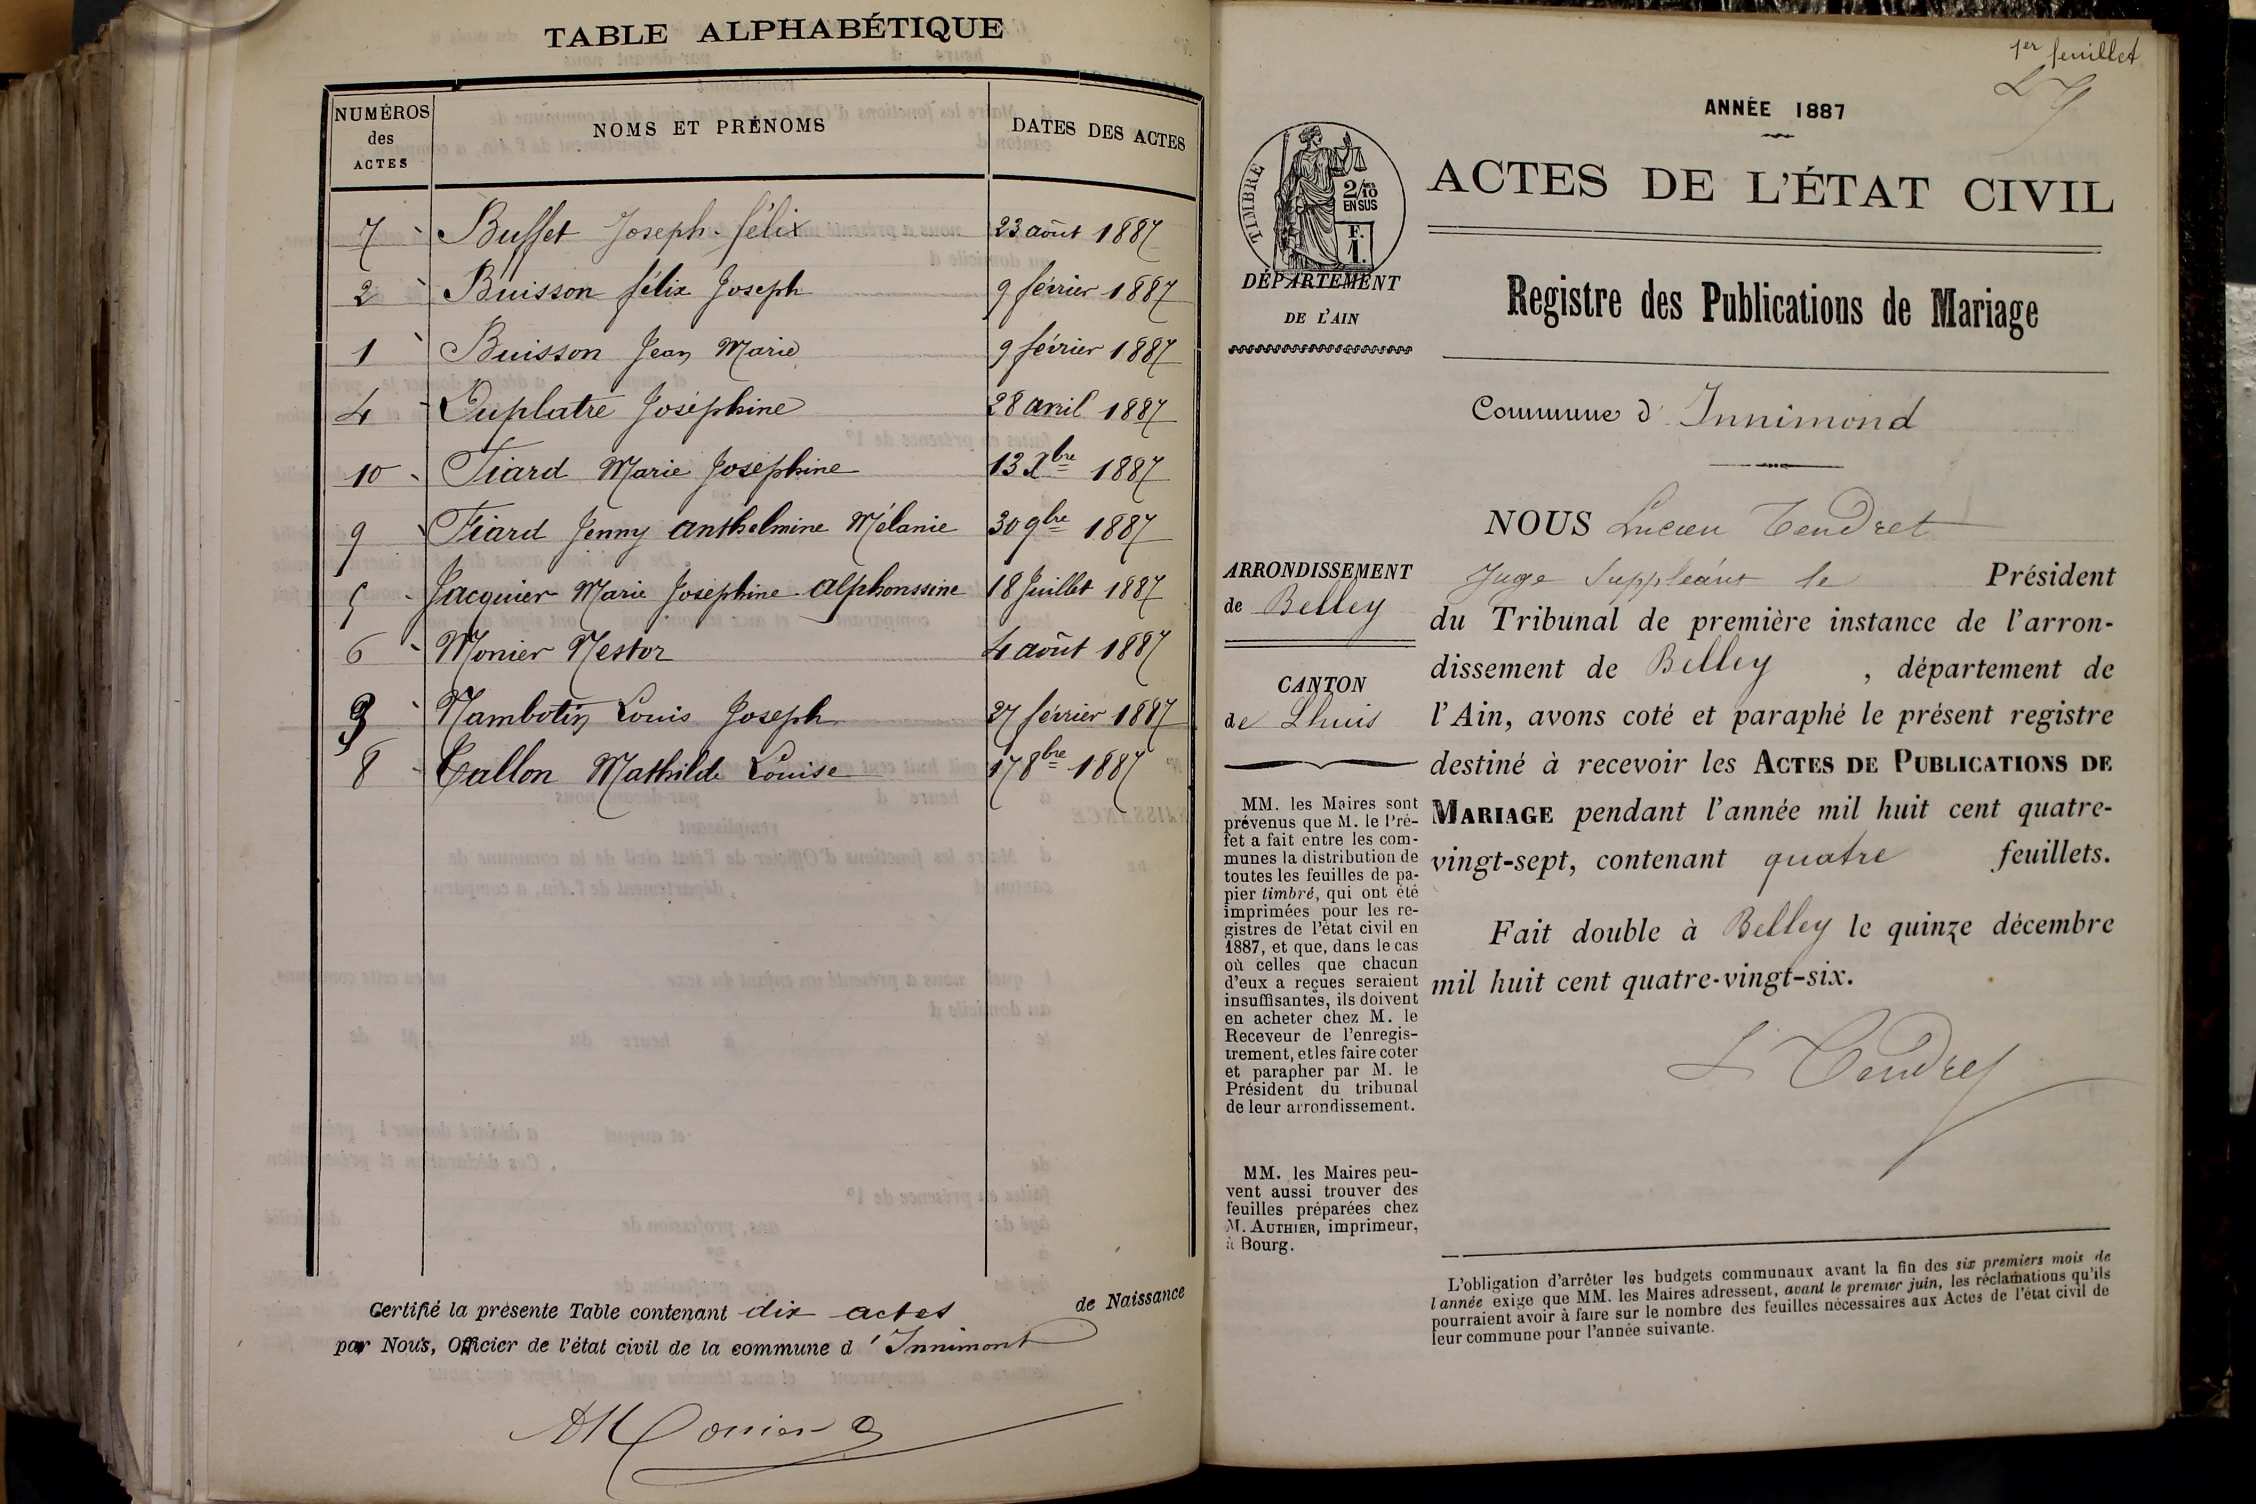 TABLE ALPHABÉTIQUE
NUMÉROS
des
ACTES
NOMS ET PRÉNOMS
DATES DES ACTES
7 Buffet Joseph-félix 23 août 1887
2 Buisson félix Joseph 9 février 1887
1 Buisson Jean Marie 9 février 1887
4 Duplatre Joséphine 28 avril 1887
10 Fiard Marie Joséphine 13 Xbre 1887
9 Fiard Jenny anthelmine Mélanie 30 9bre 1887
5 Jacquier Marie Joséphine alphonssine 18 Juillet 1887
6 Monier Nestor 4 août 1887
3 Nambotin Louis Joseph 27 février 1887
8 Tallon Mathilde Louise 17 8bre 1887
Certifié la présente Table contenant dix actes de Naissance
par Nous, Officier de l'état civil de la commune d'Innimont
AMonier
1er feuillet
LT
ANNÉE 1887
TIMBRE
2/10
EN SUS
F.
1.
ACTES DE L'ÉTAT CIVIL
DÉPARTEMENT
DE L'AIN
Registre des Publications de Mariage
Commune d'Innimond
ARRONDISSEMENT
de Belley
CANTON
de Lhuis
MM. les Maires sont
prévenus que M. le Pré-
fet a fait entre les com-
munes la distribution de
toutes les feuilles de pa-
pier timbré, qui ont été
imprimées pour les re-
gistres de l'état civil en
1887, et que, dans le cas
où celles que chacun
d'eux a reçues seraient
insuffisantes, ils doivent
en acheter chez M. le
Receveur de l'enregis-
trement, et les faire coter
et parapher par M. le
Président du tribunal
de leur arrondissement.
MM. les Maires peu-
vent aussi trouver des
feuilles préparées chez
M. AUTHIER, imprimeur,
à Bourg.
NOUS Lucien Tendret
Juge Suppléant le Président
du Tribunal de première instance de l'arron-
dissement de Belley, département de
l'Ain, avons coté et paraphé le présent registre
destiné à recevoir les ACTES DE PUBLICATIONS DE
MARIAGE pendant l'année mil huit cent quatre-
vingt-sept, contenant quatre feuillets.
Fait double à Belley le quinze décembre
mil huit cent quatre-vingt-six.
L Tendret
L'obligation d'arrêter les budgets communaux avant la fin des six premiers mois de
l'année exige que MM. les Maires adressent, avant le premier juin, les réclamations qu'ils
pourraient avoir à faire sur le nombre des feuilles nécessaires aux Actes de l'état civil de
leur commune pour l'année suivante.